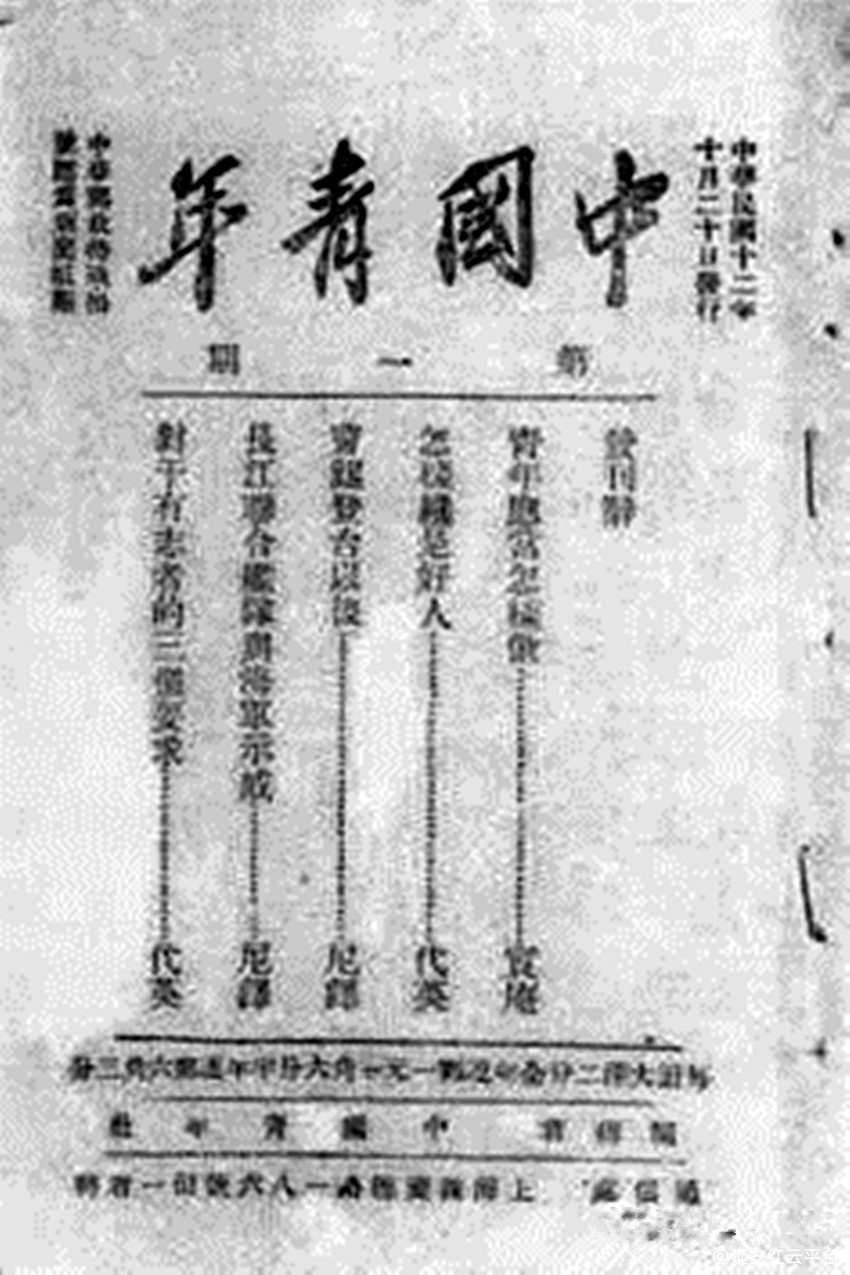 中華民國十二年
十月二十日發行
中國青年
中華郵政特准掛
號認爲新聞紙類
第一期
發刊辭
青年應當怎樣做……實庵
怎樣纔是好人……代英
曹錕登台以後……尼鐸
長江聯合艦隊與海軍示威……尼鐸
對于有志者的三個要求……代英
每冊大洋二分全年連郵一元一角六分半年連郵六角三分
編輯者 中國青年社
通信處 上海